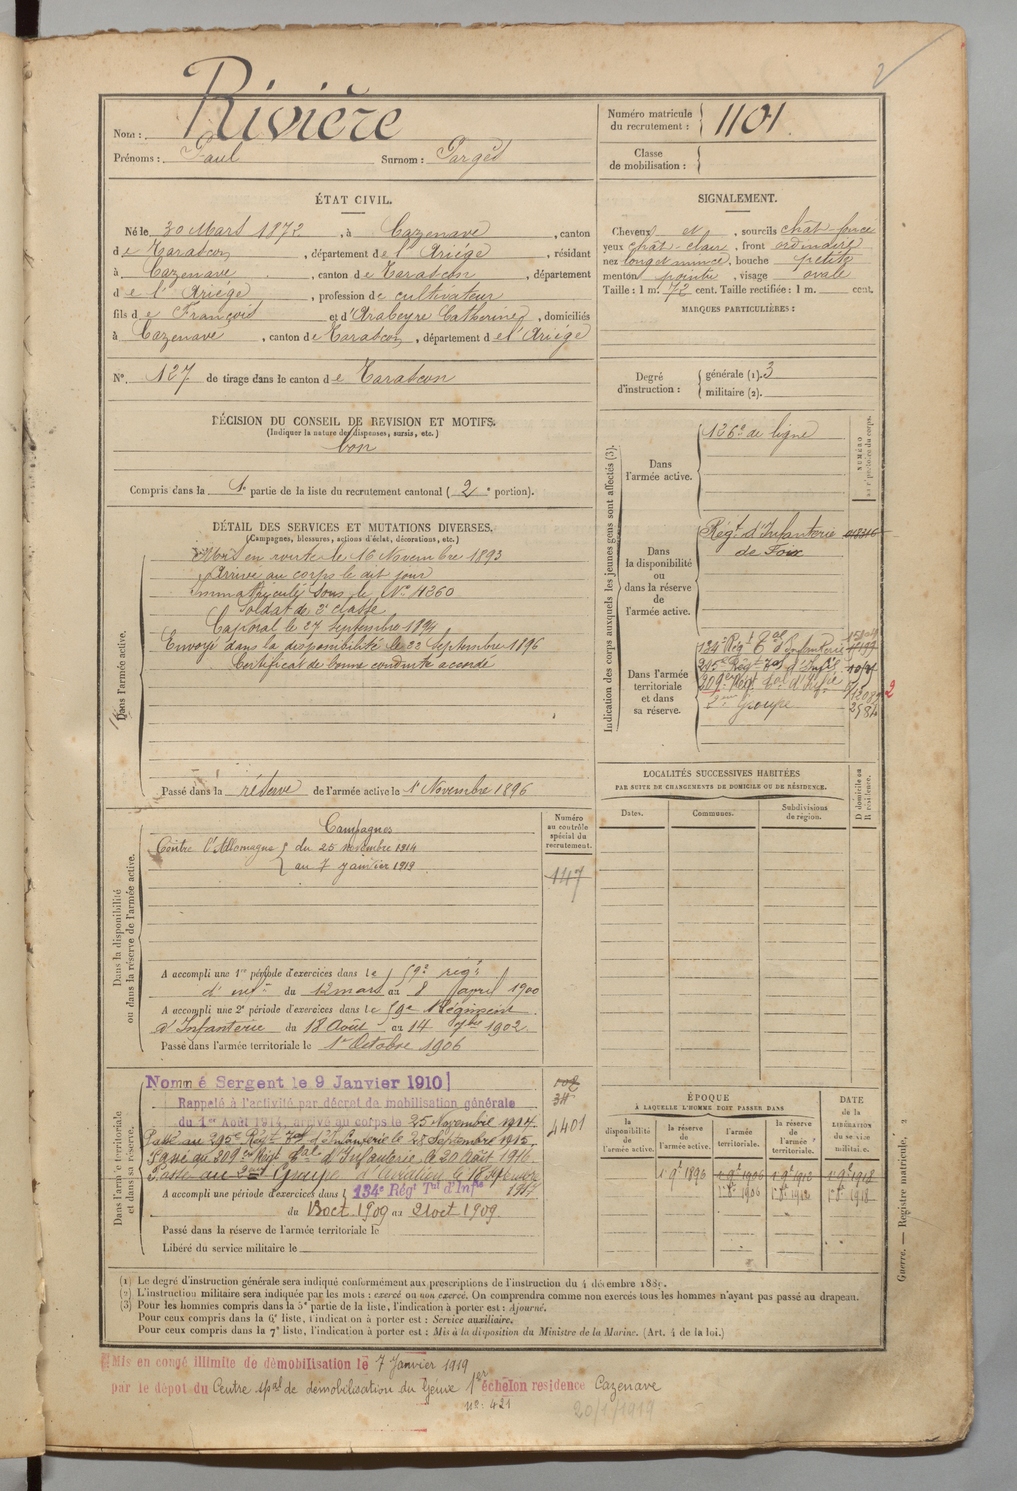 2
Nom : Rivière
Prénoms : Paul Surnom : Pargès
Numéro matricule du recrutement : 1101.
Classe de mobilisation :
ÉTAT CIVIL.
Né le 30 Mars 1872, à Cazenave, canton
de Tarascon, département de l'Ariège, résidant
à Cazenave, canton de Tarascon, département
de l'Ariège, profession de cultivateur
fils de François et d'Arabeyre Catherine, domiciliés
à Cazenave, canton de Tarascon, département de l'Ariège
N° 127 de tirage dans le canton de Tarascon
SIGNALEMENT.
Cheveux et, sourcils chât-foncé
yeux chât-clair, front ordinaire
nez long et mince, bouche petite
menton pointu, visage ovale
Taille : 1 m. 72 cent. Taille rectifiée : 1 m. cent.
MARQUES PARTICULIÈRES :
Degré d'instruction : générale (1). 3
militaire (2).
DÉCISION DU CONSEIL DE REVISION ET MOTIFS.
(Indiquer la nature des dispenses, sursis, etc.)
bon
Compris dans la 1e partie de la liste du recrutement cantonal (2e portion).
DÉTAIL DES SERVICES ET MUTATIONS DIVERSES.
(Campagnes, blessures, actions d'éclat, décorations, etc.)
Dans l'armée active.
Mis en route le 16 Novembre 1893
Arrivé au corps le dit jour
Immatriculé sous le N° 4260
Soldat de 2e classe
Caporal le 27 Septembre 1894
Envoyé dans la disponibilité le 22 Septembre 1896
Certificat de bonne conduite accordé
Passé dans la réserve de l'armée active le 1er Novembre 1896
Indication des corps auxquels les jeunes gens sont affectés (3).
NUMÉRO
au répertoire du corps.
Dans l'armée active.
126e de ligne
Dans la disponibilité ou dans la réserve de l'armée active.
Régt d'Infanterie
de Foix
Dans l'armée territoriale et dans sa réserve.
134e Régt Tal d'Infanterie
295e Régt Tal d'Infie
309e Régt Tal d'Infie
2me Groupe
2
LOCALITÉS SUCCESSIVES HABITÉES
PAR SUITE DE CHANGEMENTS DE DOMICILE OU DE RÉSIDENCE.
Dates. Communes. Subdivisions de région.
D domicile ou R résidence.
Dans la disponibilité ou dans la réserve de l'armée active.
Numéro au contrôle spécial du recrutement.
147
Campagnes
Contre l'Allemagne du 25 novembre 1914
au 7 janvier 1919
A accompli une 1re période d'exercices dans le 59e régt
d'infie du 12 mars au 8 april 1900
A accompli une 2e période d'exercices dans le 59e Régiment
d'Infanterie du 18 Août au 14 7bre 1902.
Passé dans l'armée territoriale le 1er Octobre 1906
Dans l'armée territoriale et dans sa réserve.
Nommé Sergent le 9 Janvier 1910
Rappelé à l'activité par décret de mobilisation générale
du 1er Août 1914, arrivé au corps le 25 Novembre 1914.
Passé au 295e Régt Tal d'Infanterie le 21 Septembre 1915.
Passé au 309e Régt Tal d'Infanterie le 20 Août 1916
Passé au 2me Groupe d'Aviation le 18 Septembre
1917
A accompli une période d'exercices dans l 134e Régt Tal d'Infie
du 13 oct. 1909 au 21 oct 1909.
Passé dans la réserve de l'armée territoriale le
Libéré du service militaire le
4401
ÉPOQUE
À LAQUELLE L'HOMME DOIT PASSER DANS
la disponibilité de l'armée active. la réserve de l'armée active. l'armée territoriale. la réserve de l'armée territoriale.
DATE de la LIBÉRATION du service militaire.
1er 9bre 1896 1er 9bre 1906 1er 9bre 1912 1er 9bre 1918
1er 8bre 1906 1er 8bre 1912 1er 8bre 1918
Guerre. — Registre matricule. 2
(1) Le degré d'instruction générale sera indiqué conformément aux prescriptions de l'instruction du 4 décembre 1889.
(2) L'instruction militaire sera indiquée par les mots : exercé ou non exercé. On comprendra comme non exercés tous les hommes n'ayant pas passé au drapeau.
(3) Pour les hommes compris dans la 5e partie de la liste, l'indication à porter est : Ajourné.
Pour ceux compris dans la 6e liste, l'indication à porter est : Service auxiliaire.
Pour ceux compris dans la 7e liste, l'indication à porter est : Mis à la disposition du Ministre de la Marine. (Art. 4 de la loi.)
Mis en congé illimité de démobilisation le 7 Janvier 1919
par le dépôt du Centre spal de démobilisation du 1er échelon résidence Cazenave
n° : 421
20/1/1919